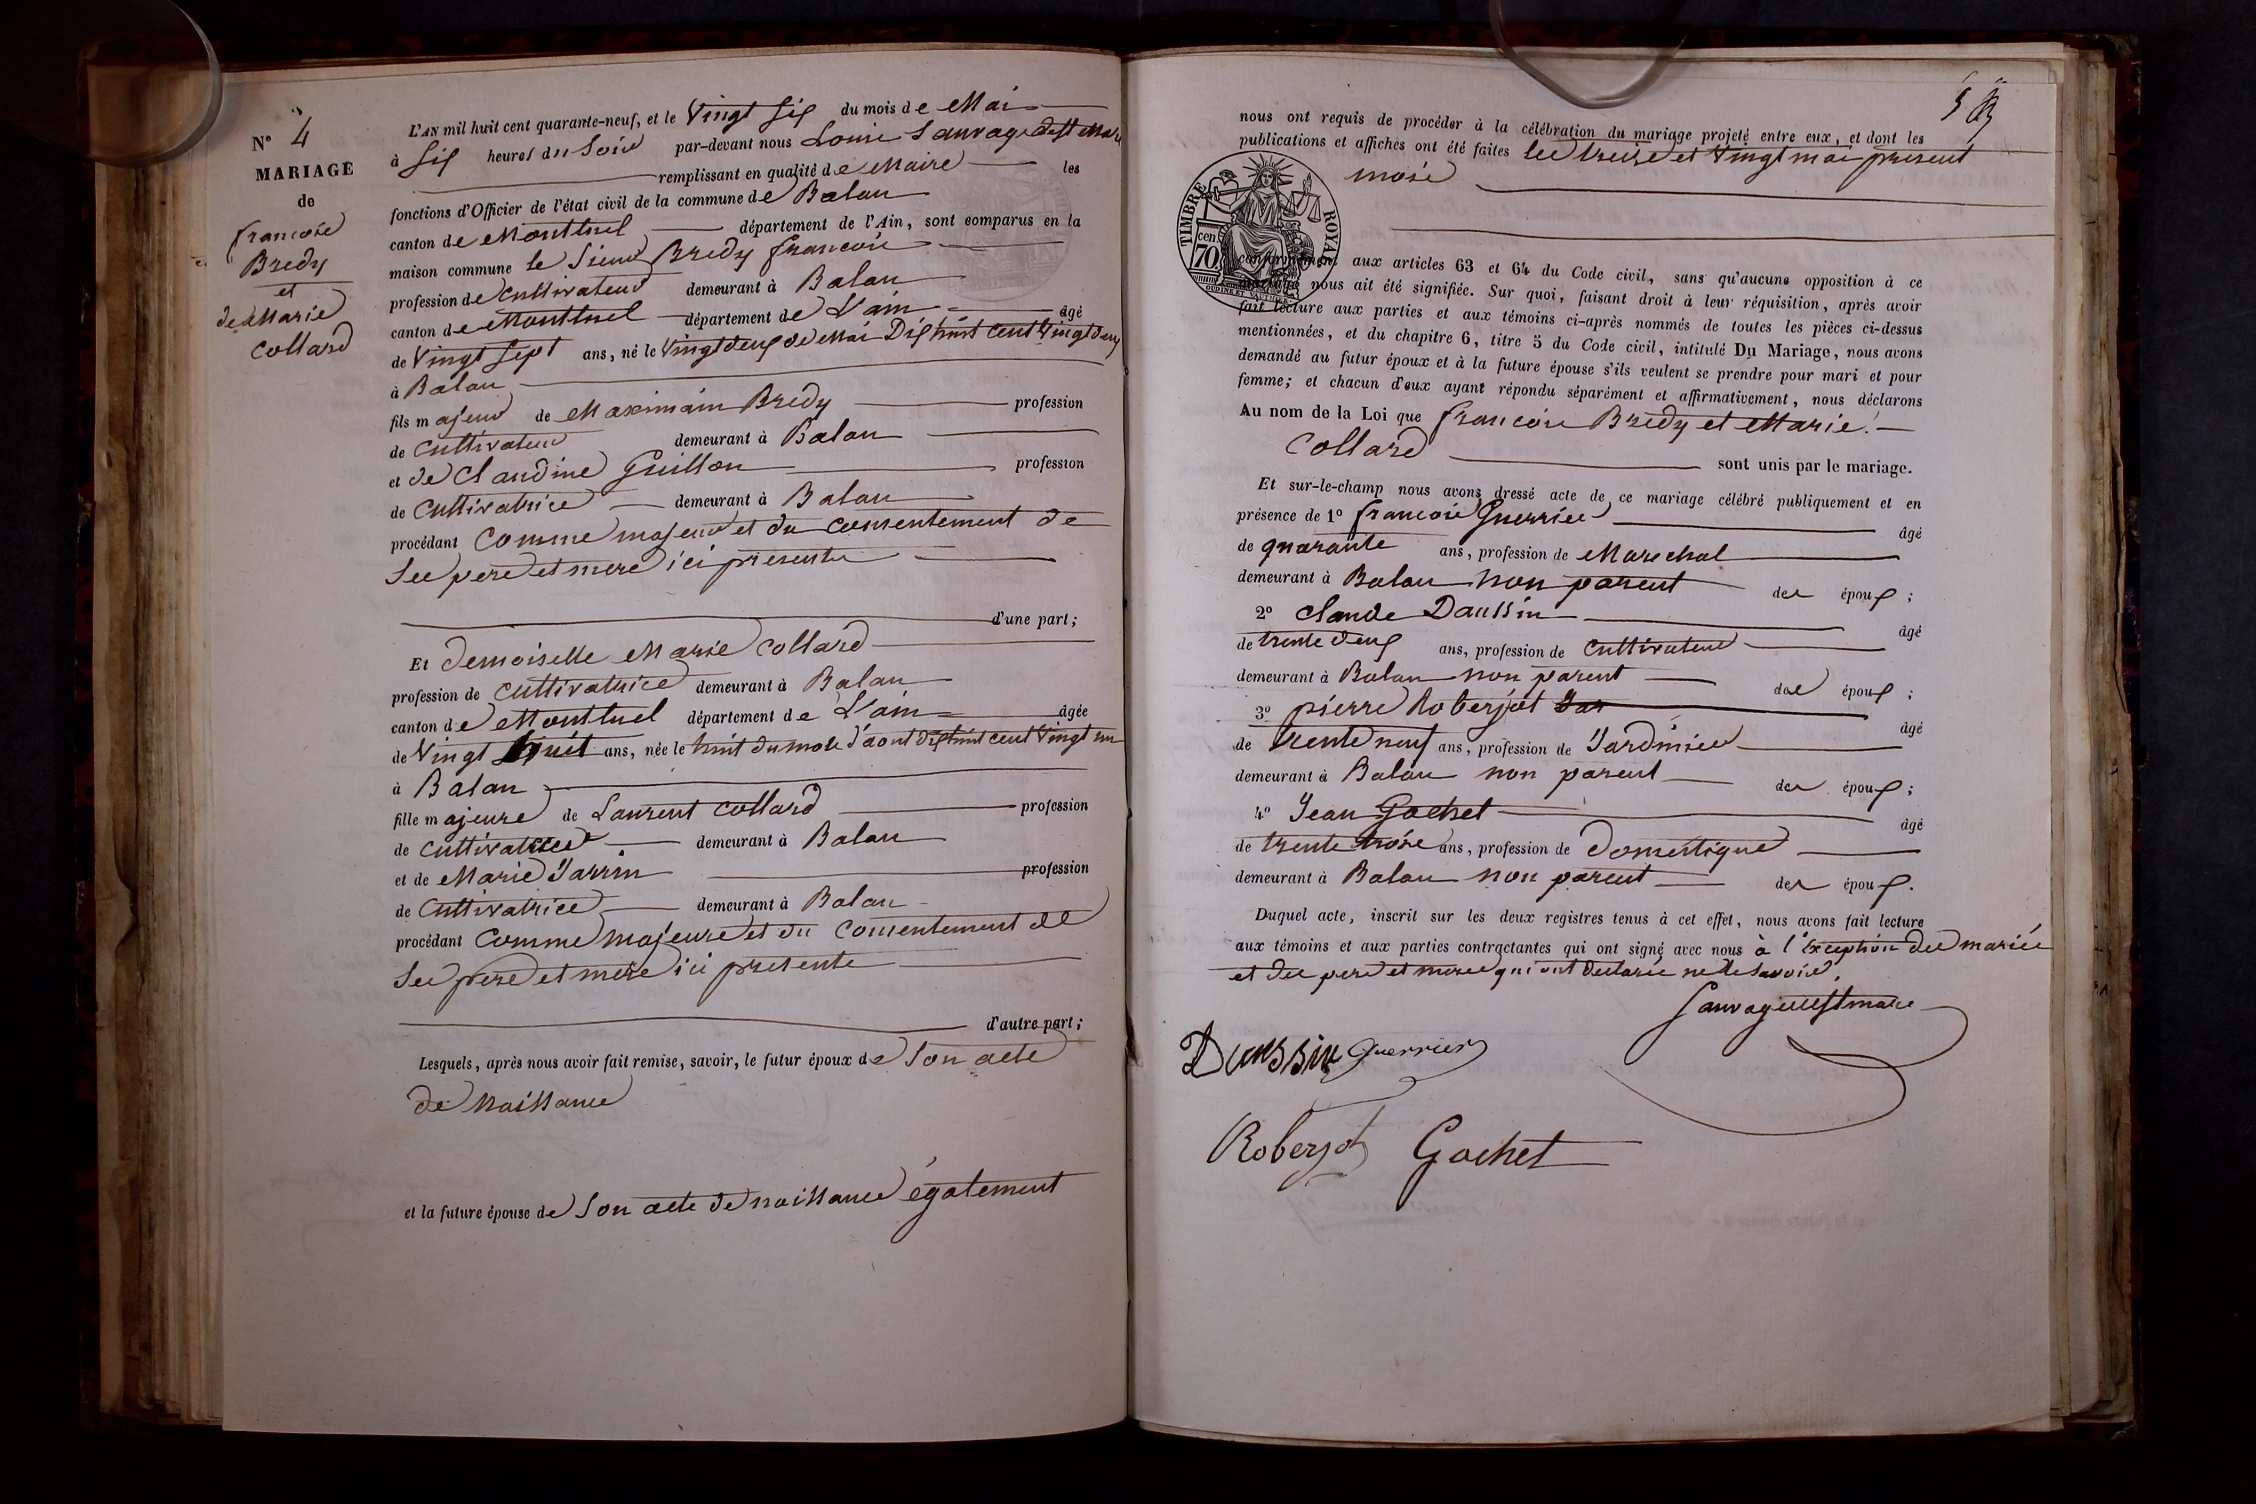 N° 4
MARIAGE
de
francoise
Bredy
et
de Marie
Collard
L'AN mil huit cent quarante-neuf, et le Vingt six du mois de Mai
à six heures du Soire par-devant nous Louie Sauvage
remplissant en qualité de Maire les
fonctions d'Officier de l'état civil de la commune de Balan
canton de Montluel département de l'Ain, sont comparus en la
maison commune le Sieur Bredy francoise
profession de cultivateur demeurant à Balan
canton de Montluel département de L'ain âgé
de Vingt sept ans, né le Vingt deux de Mai Dix huit cent Vingt deux
à Balan
fils majeur de Maximain Bredy profession
de cultivateur demeurant à Balan
et de Claudine Guillon profession
de Cultivatrice demeurant à Balan
procédant Comme majeur et du consentement de
See pere et mere ici presente
d'une part;
Et demoiselle Marie Collard
profession de cultivatrice demeurant à Balan
canton de Montluel département de L'ain âgée
de Vingt huit ans, née le huit du mois d'aout dix huit cent Vingt un
à Balan
fille majeure de Laurent Collard profession
de cultivateur demeurant à Balan
et de Marie Jarrin profession
de Cultivatrice demeurant à Balan
procédant Comme majeure et du consentement de
See pere et mere ici presente
d'autre part;
Lesquels, après nous avoir fait remise, savoir, le futur époux de Son acte
de naissance
et la future épouse de Son acte de naissance également
nous ont requis de procéder à la célébration du mariage projeté entre eux, et dont les
publications et affiches ont été faites lee treize et Vingt mai present
moise
TIMBRE ROYAL
cen.
70
conformément aux articles 63 et 64 du Code civil, sans qu'aucune opposition à ce
mariage nous ait été signifiée. Sur quoi, faisant droit à leur réquisition, après avoir
fait lecture aux parties et aux témoins ci-après nommés de toutes les pièces ci-dessus
mentionnées, et du chapitre 6, titre 5 du Code civil, intitulé Du Mariage, nous avons
demandé au futur époux et à la future épouse s'ils veulent se prendre pour mari et pour
femme; et chacun d'eux ayant répondu séparément et affirmativement, nous déclarons
Au nom de la Loi que francoise Bredy et Marie
Collard sont unis par le mariage.
Et sur-le-champ nous avons dressé acte de ce mariage célébré publiquement et en
présence de 1° francoise Guerrier âgé
de quarante ans, profession de Marechal
demeurant à Balan non parent des époux;
2° Claude Daussin âgé
de trente deux ans, profession de cultivateur
demeurant à Balan non parent des époux;
3° pierre Roberjot Jar âgé
de trente neuf ans, profession de Jardinier
demeurant à Balan non parent des époux;
4° Jean Gochet âgé
de trente troise ans, profession de Domestique
demeurant à Balan non parent des époux.
Duquel acte, inscrit sur les deux registres tenus à cet effet, nous avons fait lecture
aux témoins et aux parties contractantes qui ont signé avec nous à l'exception dee mariée
et dee pere et meree qui ont declarée ne le savoire.
Daussin Guerrier
Roberjot Gochet